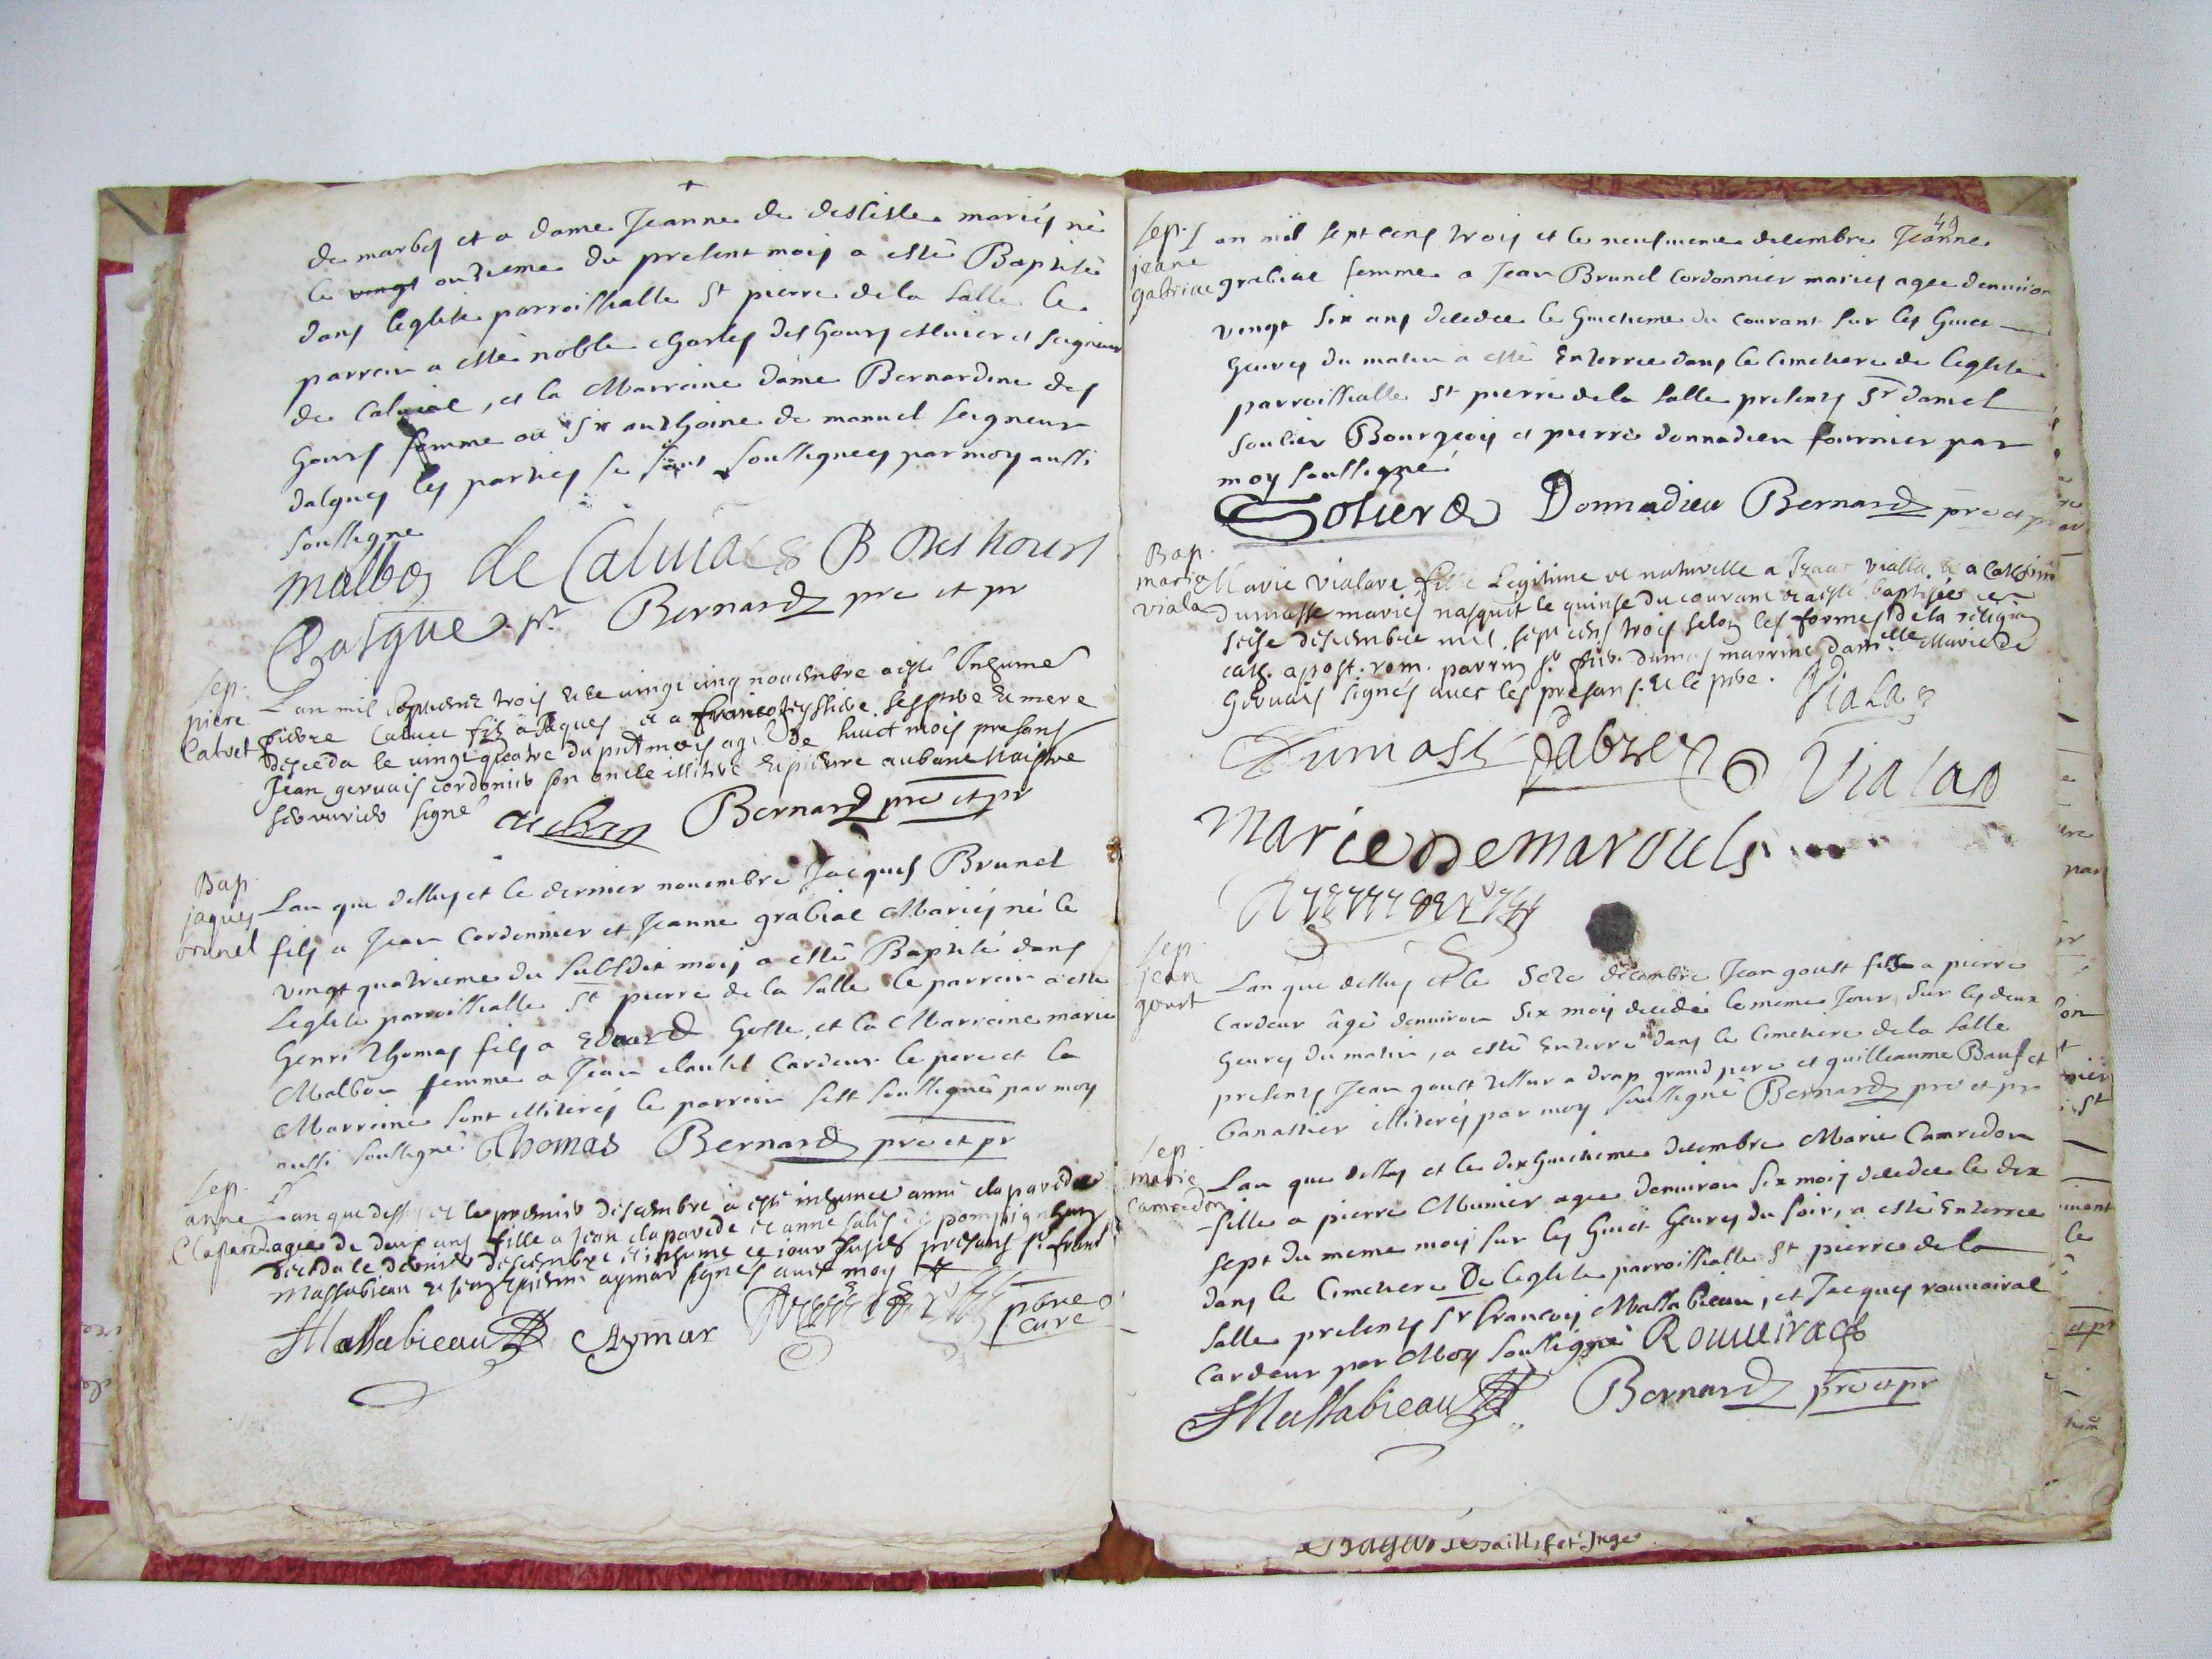 de marbes et a dame Jeanne de deslisle mariés né
le vingt onzieme du present mois a esté Baptisé
dans leglise parroissialle St pierre de la salle le
parrein a esté noble charles des hours escuier et seigneur
de Calviac, et la Marreine dame Bernardine des
hours femme au Sr anthoine de manuel seigneur
dalgues les parties se sont soussignees par moy aussi
soussigne
malbos de Calviac B Des hours
Dalgue Bernard pre et pr
sep.
piere
Calvet
Lan mil sept cent trois et le vingt cinq novembre a esté Inhumé
pierre Calvet filz a Jaques et a francoise teyssiere ses pere et mere
deceda le vingt quatre du pnt mois agé de huict mois presans
Jean gervais cordonier son oncle illitere et pierre auban Maistre
serrurier signé
Bernard pre et pr
Bap.
jaques
brunel
Lan que dessus et le dernier novembre Jacques Brunel
fils a Jean Cordonnier et Jeanne grabial Mariés né le
vingt quatrieme du susdit mois a esté Baptisé dans
Leglise parroissialle St pierre de la salle le parrein a esté
henri Thomas fils a Edouard hoste et la Marreine marie
Malbou femme a Jean clausel Cardeur le pere et la
Marreine sont illiterés le parrein sest soussigné par moy
aussi soussigné Thomas Bernard pre et pr
sep.
anne
Claparede
Lan que dessus et le premier desambre a esté inhumee anne claparede
agee de deux ans fille a Jean claparede et anne salis de pompignhan
deceda le dernier desembre et inhumé ce jour dhuy presans sr frans
Massabieau et sieur pierre aymar signés avec moy
Massabieau Aymar pbre
curé
49
sep.
jeane
gabriac
Lan mil sept cens trois et le neufvieme decembre Jeanne
grabial femme a Jean Brunel Cordonnier mariés agee denviron
vingt six ans decedee le huictieme du courant sur les huict
heures du matin a esté Enterree dans le Cimetiere de leglise
parroissialle St pierre de la salle presents Sr daniel
soulier Bourgeois et pierre donnadieu fournier par
moy soussigné
Solier Donnadieu Bernard pre et pr
Bap.
marie
viala
Marie vialare fille Legitime et naturelle a Izaac vialla et a Catherine
dumasse mariés nasquit le quinse du courant et a esté baptisée le
seise desembre mil sept cens trois selon les formes de la religion
cath. apost. rom. parrin sr dumas marrine damelle Marie de
gervais signés avec les presans. et le pere. Viala
Dumast fabre Vialas
Marie Demarouls
sep.
jean
goust
Lan que dessus et le seze decembre Jean goust fils a pierre
Cardeur âgé denviron six mois decedé le meme Jour sur les deux
heures du matin, a esté Enterré dans le Cimetiere de la salle
presents Jean goust tisseur a drap grand pere et guilleaume Bauf et
banastier illiterés par moy soussigné Bernard pre et pr
sep.
marie
Camredon
Lan que dessus et le dix huictieme decembre Marie Camredon
fille a pierre Munier agee denviron six mois decedee le dix
sept du meme mois sur les huict heures du soir, a esté Enterree
dans le Cimetiere De leglise parroissialle St pierre de la
salle presents sr francois Massabieau, et Jacques rouveirac
Cardeur par Moy soussigné Rouveirac
Massabieau Bernard pre et pr